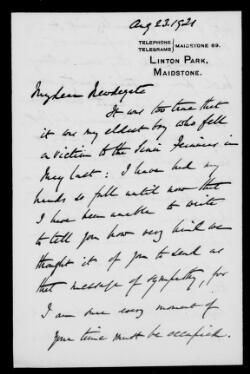 Aug 23. 1921
TELEPHONE
TELEGRAMS
MAIDSTONE 69.
LINTON PARK,
MAIDSTONE.
My dear Newdegate
It was too true that
it was my eldest boy who fell
a victim to the Sinn Feiners in
May last: I have had my
hands so full until now that
I have been unable to write
to tell you how very kind we
thought it of you to send us
that message of sympathy, for
I am sure every moment of
your time must be occupied.